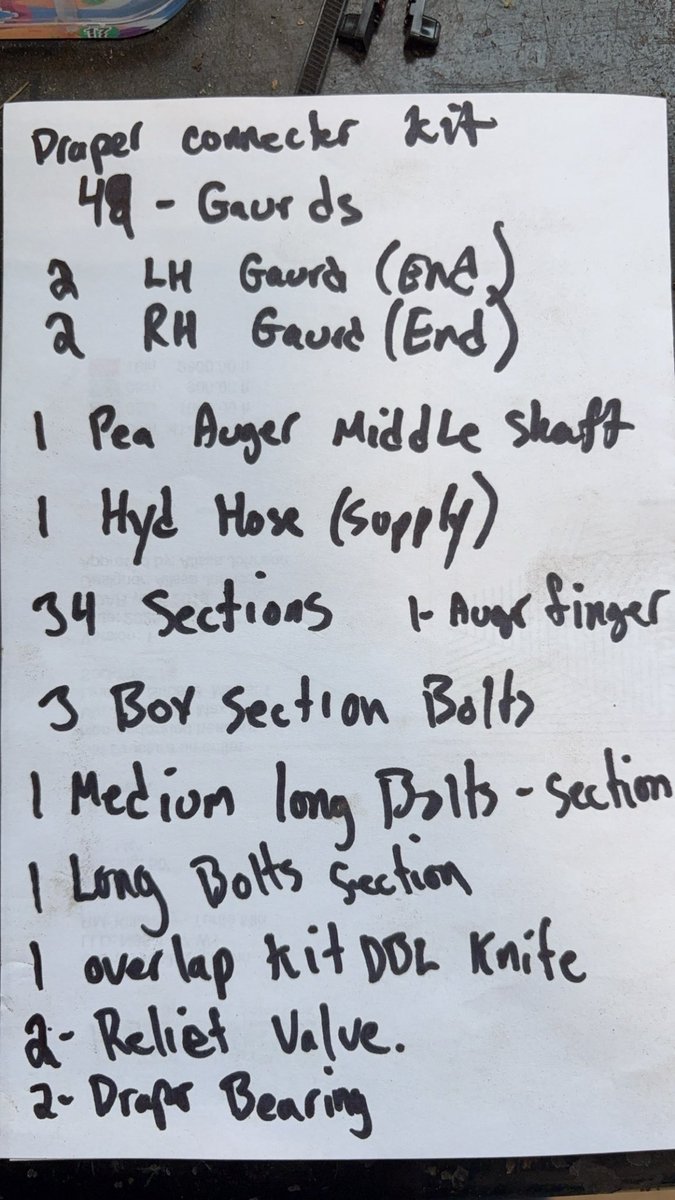 Draper connecter kit
- Gaurds
2 LH Gaurd (End)
2 RH Gaurd (End)
1 Pea Auger Middle shaft
1 Hyd Hose (supply)
34 Sections 1- Augr finger
3 Box section Bolts
1 Medium long Bolts - section
1 Long Bolts section
1 overlap kit DBL Knife
2- Relief Valve.
2- Drapr Bearing